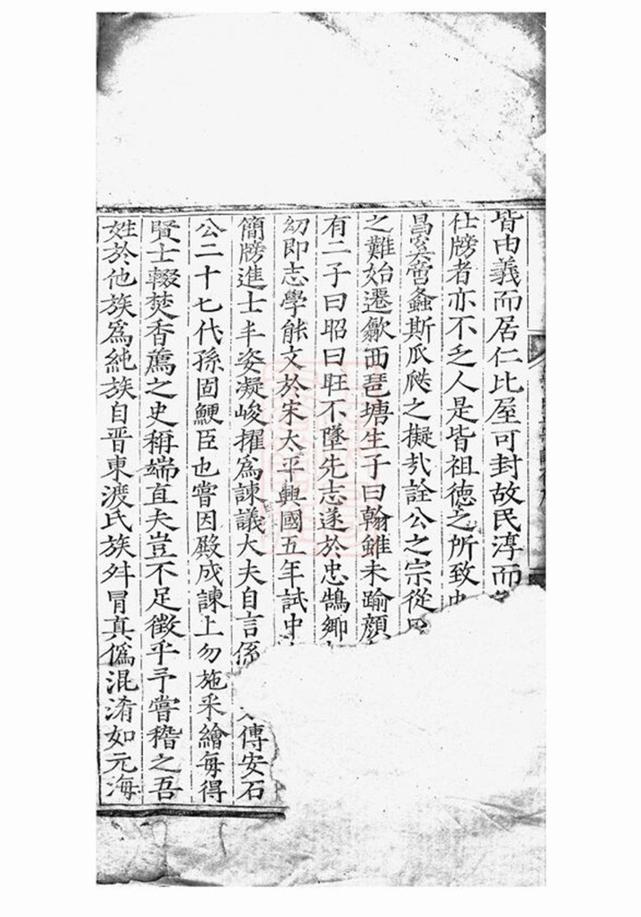 皆由義而居仁比屋可封故民淳而
仕牓者亦不乏人是皆祖德之所致
昌奚啻螽斯瓜瓞之擬㢤詮公之宗從
之難始遷歙西琶塘生子曰翰雖未踰顔
有二子曰昭曰旺不墜先志遂於忠鵠鄉
㓜即志學能文於宋太平興國五年試中
簡牓進士丰姿凝峻擢爲諫議大夫自言係 傳安石
公二十七代孫固鯁臣也嘗因殿成諫上勿施采繪每得
賢士輟焚香薦之史稱端直夫豈不足徵乎予嘗稽之吾
姓於他族爲純族自晋東渡氏族舛冒真僞混淆如元海